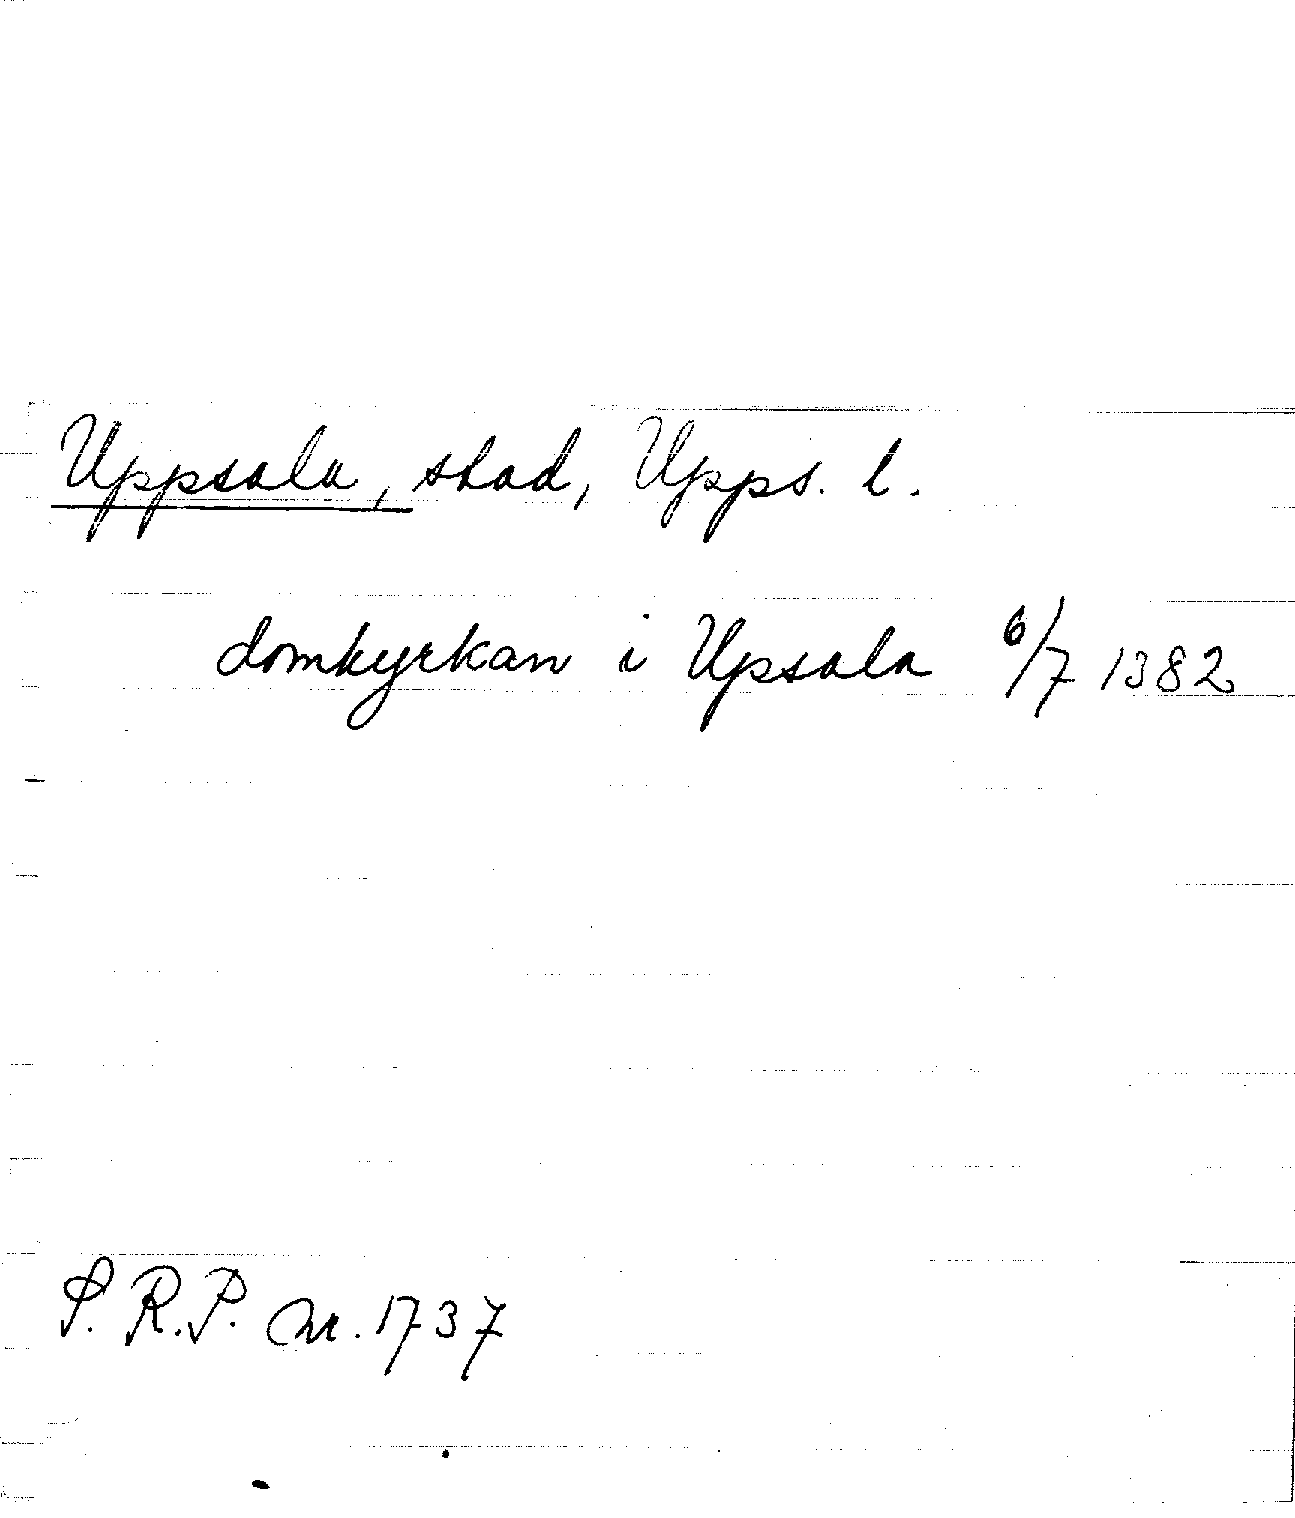 Uppsala, stad, Upps. l.
domkyrkan i Upsala 6/7 1382
S.R.P. nr. 1737